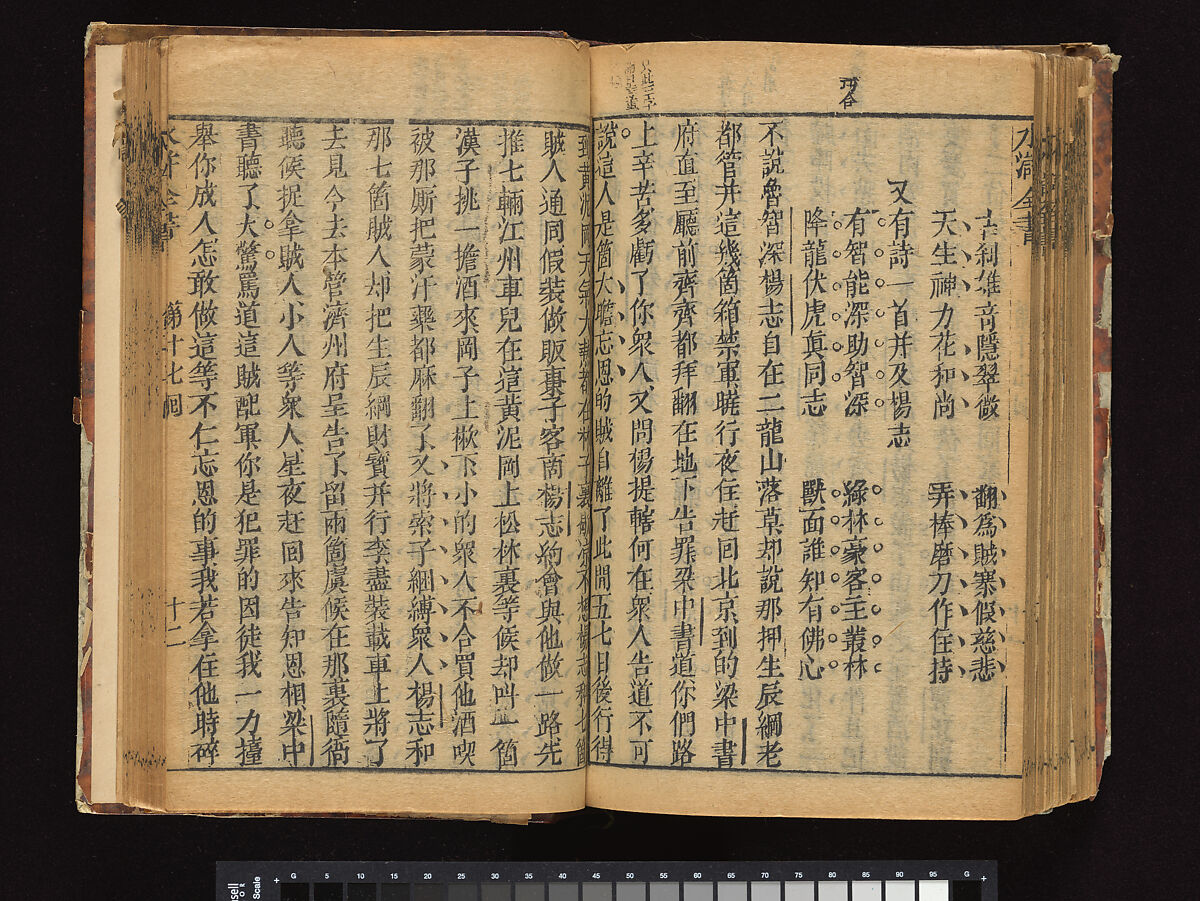 水滸全書
古刹雄奇隱翠微　翻爲賊寨假慈悲
天生神力花和尚　弄棒磨刀作住持
又有詩一首并及楊志
有智能深助智深　綠林豪客主叢林
降龍伏虎眞同志　獸面誰知有佛心
不說魯智深楊志自在二龍山落草却說那押生辰綱老
都管并這幾箇箱禁軍曉行夜住赶回北京到的梁中書
府直至廳前齊齊都拜翻在地下告罪梁中書道你們路
上辛苦多虧了你衆人又問楊提轄何在衆人告道不可
說這人是箇大膽忘恩的賊自離了此間五七日後行得
到黃泥岡天氣大熱都在林子裏歇涼不想楊志和七箇
賊人通同假裝做販棗子客商楊志約會與他做一路先
推七輛江州車兒在這黃泥岡上松林裏等候却叫一箇
漢子挑一擔酒來岡子上歇下小的衆人不合買他酒喫
被那厮把蒙汗藥都麻翻了又將索子綑縛衆人楊志和
那七箇賊人却把生辰綱財寶并行李盡裝載車上將了
去見今去本管濟州府呈告了留兩箇虞候在那裏隨衙
聽候捉拿賊人小人等衆人星夜赶回來告知恩相梁中
書聽了大驚罵道這賊配軍你是犯罪的囚徒我一力擡
舉你成人怎敢做這等不仁忘恩的事我若拿住他時碎
水滸全書　第十七囘　十二